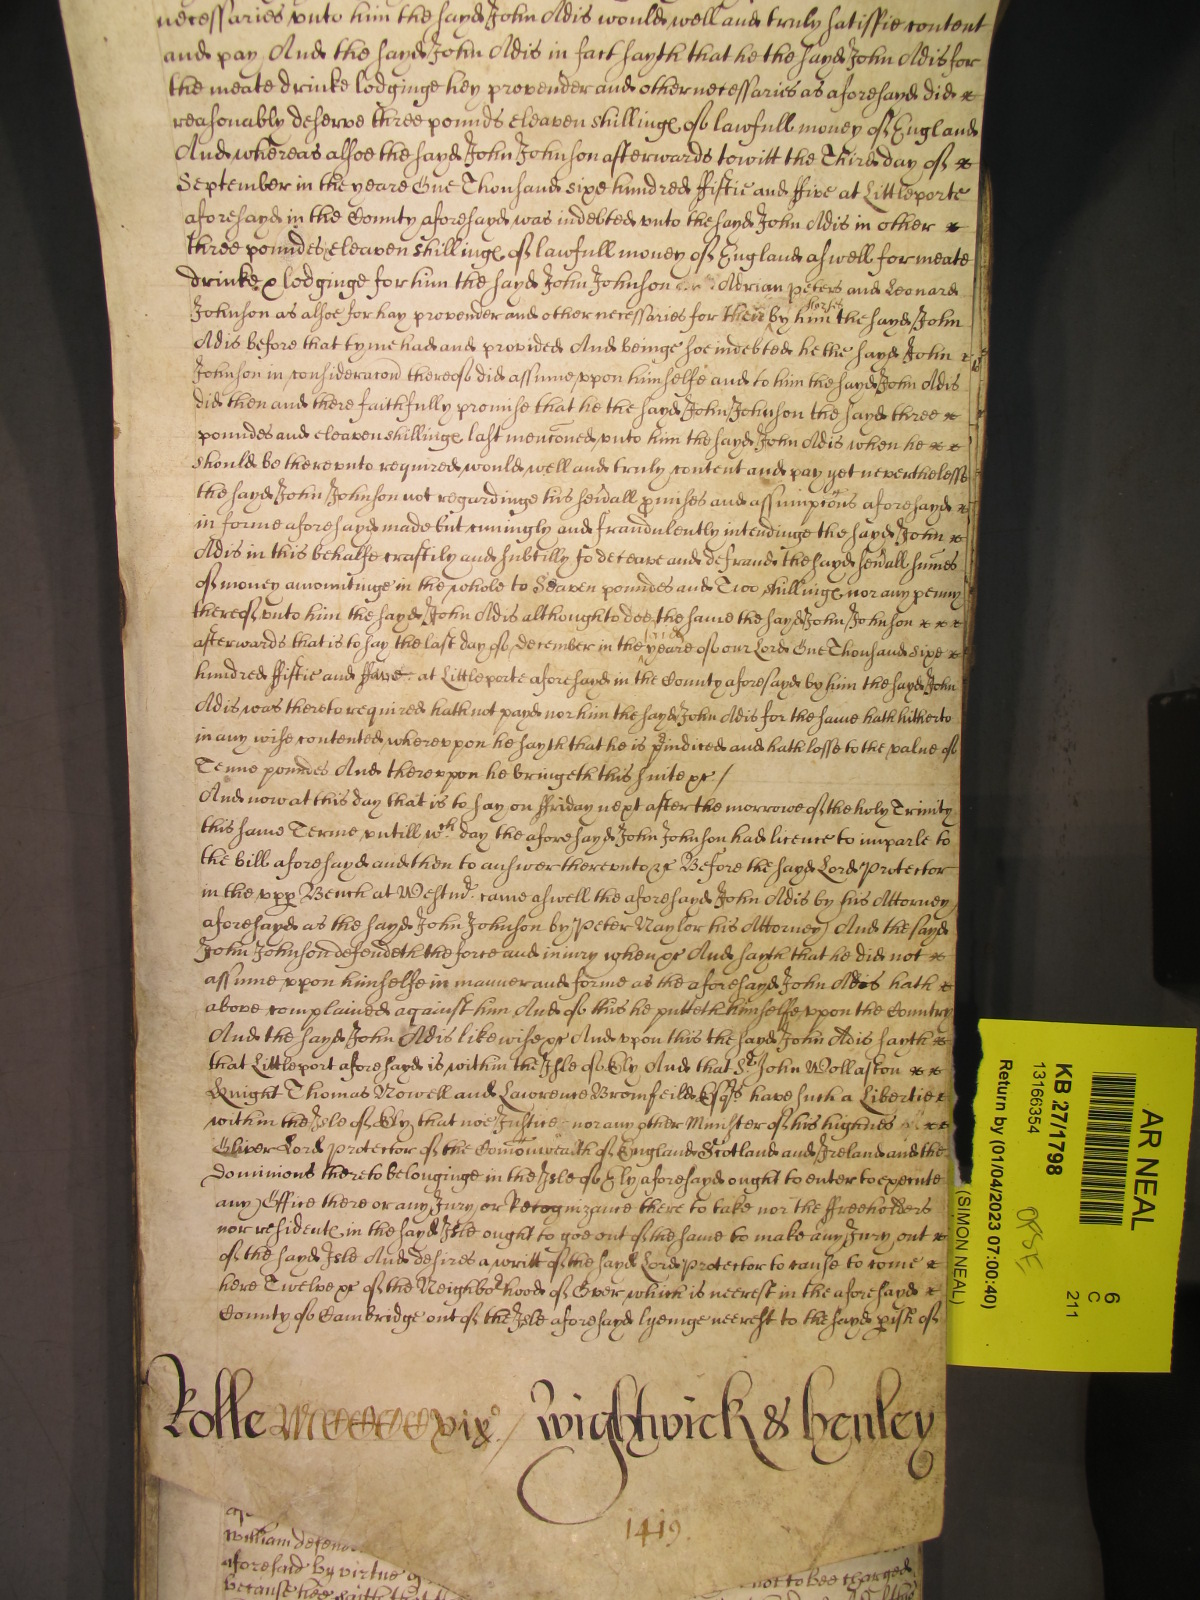 necessaries vnto him the sayd John Adis would well and truly satisfie content
and pay And the sayd John Adis in fact sayth that he the sayd John Adis for
the meate drinke lodginge hey provender and other necessaries as aforesayd did
reasonably deserve three pounds eleaven shillinge of lawfull money of England
And whereas alsoe the sayd John Johnson afterwards towitt the Third day of
September in the yeare One Thousand sixe hundred ffiftie and ffive at Littleporte
aforesayd in the County aforesayd was indebted vnto the sayd John Adis in other
three poundes eleaven shillinge of lawfull money of England aswell for meate
drinke & lodginge for him the sayd John Johnson Adrian Peters and Leonard
Johnson as alsoe for hay provender and other necessaries for their horses by him the sayd John
Adis before that tyme had and provided And beinge soe indebted he the sayd John
Johnson in consideracon thereof did assume vpon himselfe and to him the sayd John Adis
did then and there faithfully promise that he the sayd John Johnson the sayd three
poundes and eleaven shillinge last menconed vnto him the sayd John Adis when he
should be therevnto required would well and truly content and pay yet neverthelesse
the sayd John Johnson not regardinge his sevall pmises and assumpcons aforesayd
in forme aforesayd made but cuningly and fraudulently intendinge the sayd John
Adis in this behalfe craftily and subtilly to deceave and defraud the sayd sevall sumes
of money amountinge in the whole to Seaven poundes and Two shillinge nor any penny
thereof vnto him the sayd John Adis although to doe the same the sayd John Johnson
afterwards that is to say the last day of December in the yeare of our Lord One Thousand sixe
hundred ffiftie and ffive at Littleporte aforesayd in the County aforesayd by him the sayd John
Adis was thereto required hath not payd nor him the sayd John Adis for the same hath hitherto
in any wise contented wherevpon he sayth that he is piudiced and hath losse to the value of
Tenne poundes And therevpon he bringeth this suite &c /
And now at this day that is to say on ffriday next after the morrowe of the holy Trinity
this same Terme vntill wch day the aforesayd John Johnson had licence to imparle to
the bill aforesayd and then to answer therevnto &c Before the sayd Lord Protector
in the vpp Bench at Westm. came aswell the aforesayd John Adis by his Attorney
aforesayd as the sayd John Johnson by Peter Naylor his Attorney And the sayd
John Johnson defendeth the force and iniury when &c And sayth that he did not
assume vpon himselfe in manner and forme as the aforesayd John Adis hath
above complained against him And of this he putteth himselfe vpon the Country
And the sayd John Adis likewise &c And vpon this the sayd John Adis sayth
that Littleport aforesayd is within the Isle of Ely And that Sr John Wollaston
Knight Thomas Nowell and Lawrence Bromfeild Esqrs have such a Libertie
within the Isle of Ely that noe Justice nor any other Minister of his highnes
Oliver Lord Protector of the Comonwealth of England Scotland and Ireland and the
Dominions thereto belonginge in the Isle of Ely aforesayd ought to enter to execute
any Office there or any Jury or Recognizance there to take nor the ffreeholders
nor residente in the sayd Isle ought to goe out of the same to make any Jury out
of the sayd Isle And desires a writt of the sayd Lord Protector to cause to come
here Twelve &c of the Neighborhood of Over which is neerest in the aforesayd
County of Cambridge out of the Isle aforesayd lyeinge neerest to the sayd pish of
Rolle MCCCCxix / Wightwick & henley
1419.
William defend
aforesaid by virtue
because hee saith that
not to bee charged
AR NEAL
6
C
211
KB 27/1798
13166354
Return by (01/04/2023 07:00:40)
(SIMON NEAL)